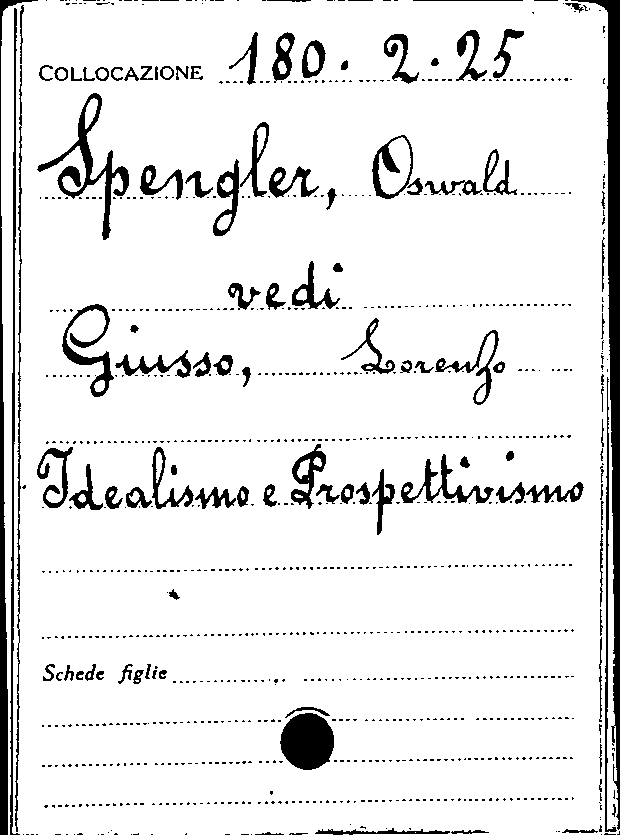 COLLOCAZIONE 180. 2. 25
Spengler, Oswald
vedi
Giusso, Lorenzo
Idealismo e Prospettivismo
Schede figlie